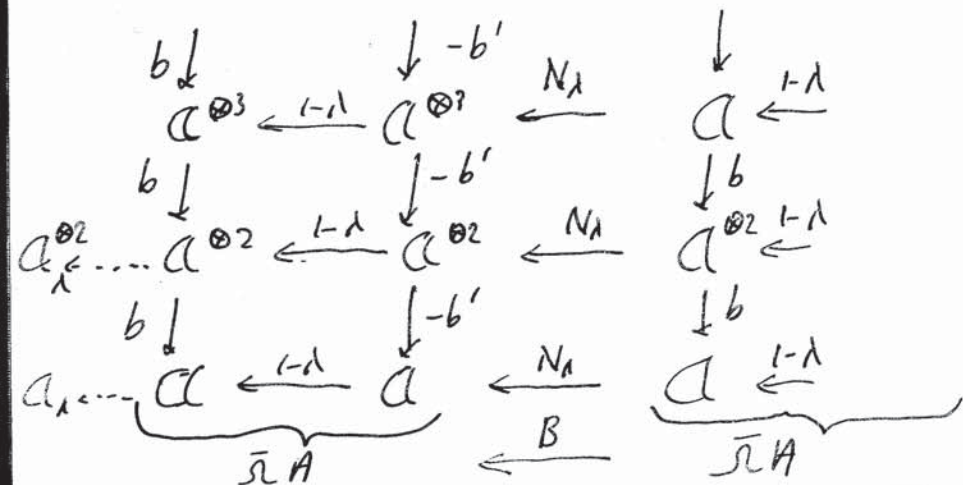 b ↓ ↓ -b' ↓
a^{⊗3} ←^{1-λ} a^{⊗3} ←^{N_λ} a ←^{1-λ}
b ↓ ↓ -b' ↓ b
a_λ^{⊗2} ⇠ a^{⊗2} ←^{1-λ} a^{⊗2} ←^{N_λ} a^{⊗2} ←^{1-λ}
b ↓ ↓ -b' ↓ b
a_λ ⇠ a ←^{1-λ} a ←^{N_λ} a ←^{1-λ}
Ω̄A ←^{B} Ω̄A